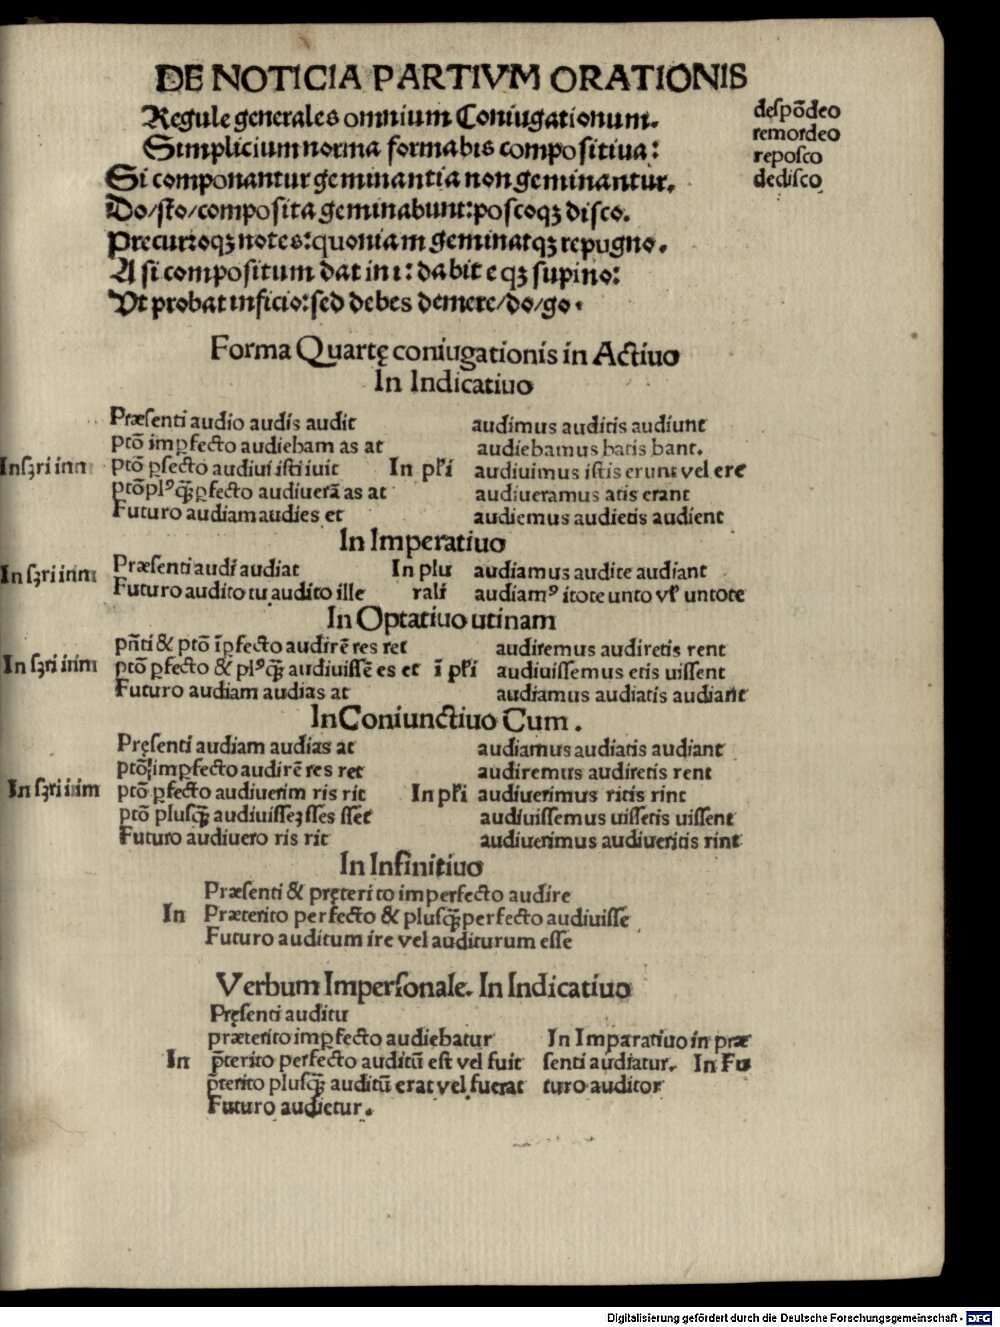 DE NOTICIA PARTIVM ORATIONIS
Regule generales omnium Coniugationum.
Simplicium norma formabis compositiua:
Si componantur geminantia non geminantur.
Do/sto/composita geminabunt: poscoqꝫ disco.
Precurroqꝫ notes: quoniam geminatqꝫ repugno.
A si compositum dat in i: dabit e qꝫ supino:
Vt probat inficio: sed debes demere/do/go.
despõdeo
remordeo
reposco
dedisco
Forma Quartę coniugationis in Actiuo
In Indicatiuo
Præsenti audio audis audit audimus auditis audiunt
ptõ imꝑfecto audiebam as at audiebamus batis bant.
In sꝫri ptõ ꝑfecto audiui isti iuit In pl'i audiuimus istis erunt vel ere
ptõ plꝰqꝫ̃ꝑfecto audiuerã as at audiueramus atis erant
Futuro audiam audies et audiemus audietis audient
In Imperatiuo
In sꝫri Præsenti audi audiat In plu audiamus audite audiant
Futuro audito tu audito ille rali audiamꝰ itote unto vl' untote
In Optatiuo utinam
pñti & ptõ ĩꝑfecto audirẽ res ret audiremus audiretis rent
In sꝫri ptõ ꝑfecto & plꝰqꝫ̃ audiuissẽ es et ĩ pl'i audiuissemus etis uissent
Futuro audiam audias at audiamus audiatis audiant
In Coniunctiuo Cum.
Pręsenti audiam audias at audiamus audiatis audiant
ptõ imꝑfecto audirẽ res ret audiremus audiretis rent
In sꝫri ptõ ꝑfecto audiuerim ris rit In pl'i audiuerimus ritis rint
ptõ plusqꝫ̃ audiuisseꝫ sses sset audiuissemus uissetis uissent
Futuro audiuero ris rit audiuerimus audiueritis rint
In Infinitiuo
Præsenti & pręterito imperfecto audire
In Præterito perfecto & plusqꝫ̃perfecto audiuisse
Futuro auditum ire vel auditurum esse
Verbum Impersonale. In Indicatiuo
Pręsenti auditu
præterito imꝑfecto audiebatur In Imparatiuo in præ
In p̃terito perfecto auditũ est vel fuit senti audiatur. In Fu
p̃terito plusqꝫ̃ auditũ erat vel fuerat turo auditor
Futuro audietur.
Digitalisierung gefördert durch die Deutsche Forschungsgemeinschaft - DFG